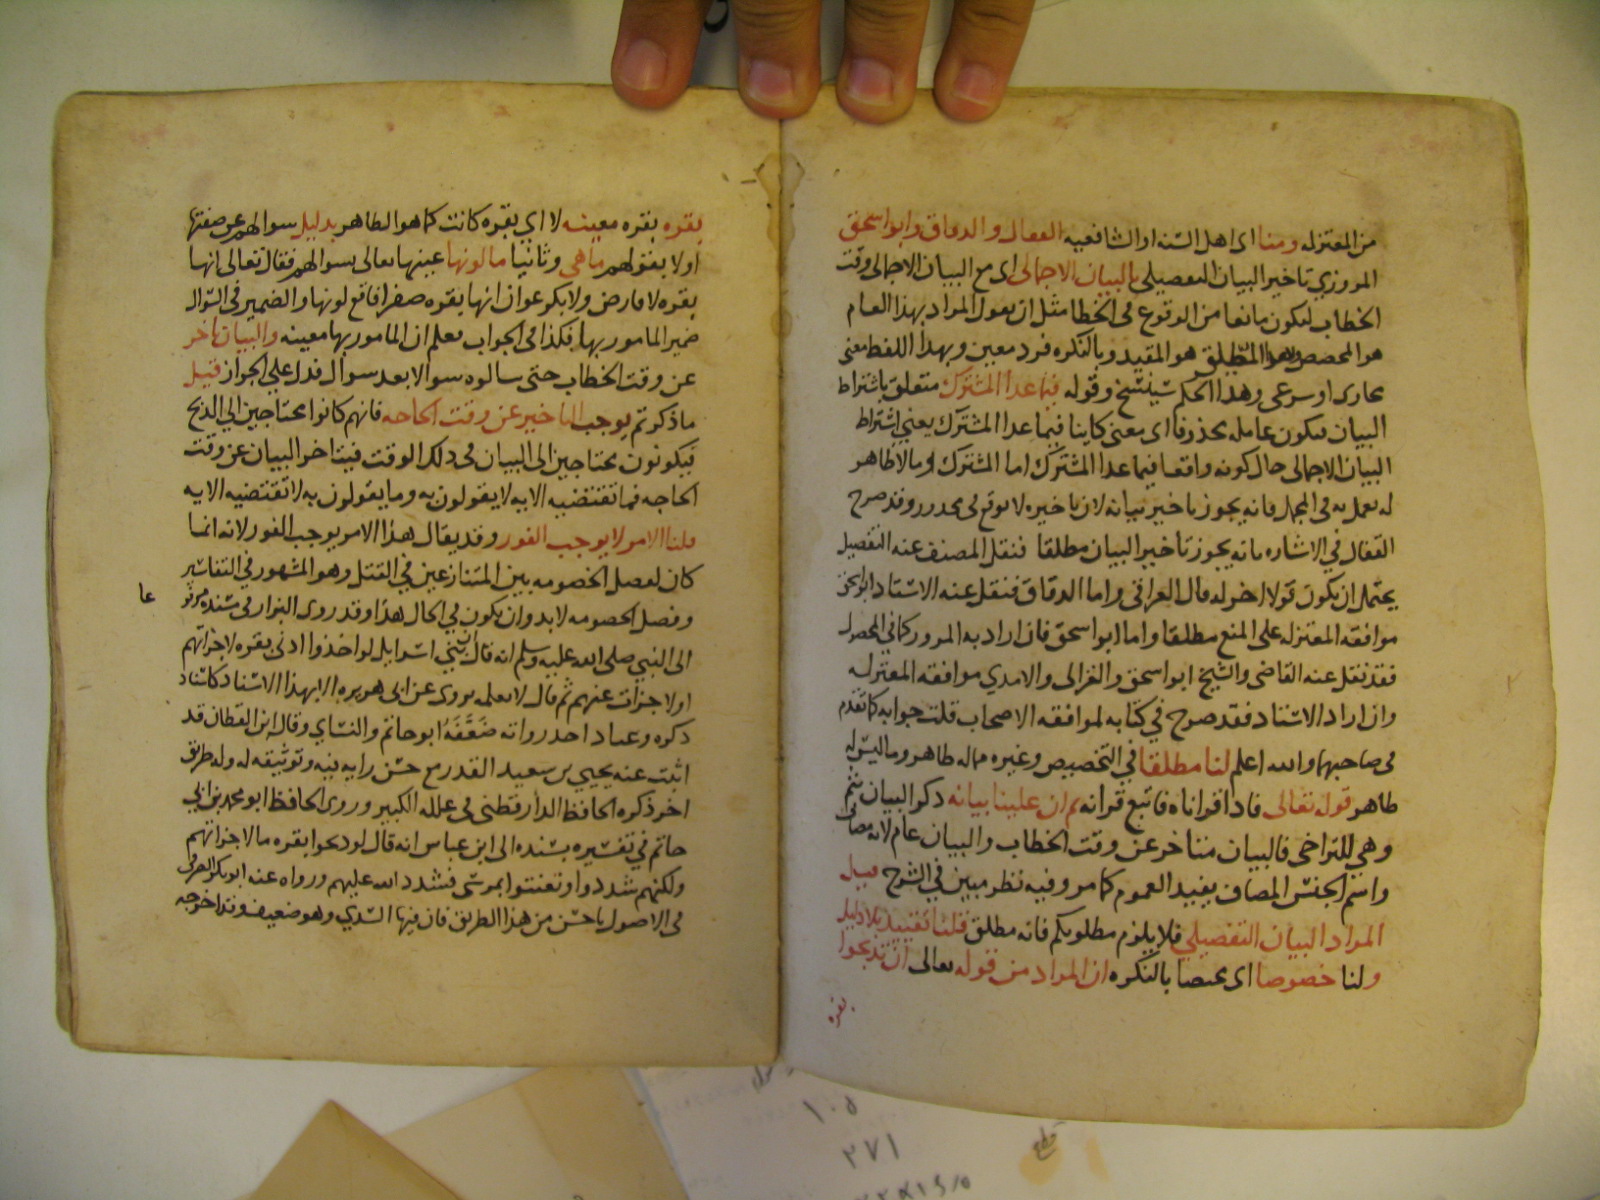 من المعتزله ومنا اى اهل السنه او الشافعيه القفال والدقاق وابو اسحق
المروزي تاخير البيان التفصيلى بالبيان الاجمالى اى مع البيان الاجمالى وقت
الخطاب ليكون مانعا من الوقوع فى الخطا مثل ان يقول المراد بهذا العام
هو المخصص وبهذا المطلق هو المقيد وبالنكره فرد معين وبهذا اللفظ معنى
مجازى او شرعى وهذا الحكم سينسخ وقوله فيما عدا المشترك متعلق باشتراط
البيان فيكون عامله محذوفا اى معنى كاينا فيما عدا المشترك يعنى اشتراط
البيان الاجمالى حال كونه واقعا فيما عدا المشترك اما المشترك او مالا ظاهر
له يعمل به فى المجمل فانه يجوز تاخير بيانه لان تاخيره لا يوقع فى محذور وقد صرح
القفال في الاشاره بانه يجوز تأخير البيان مطلقا فنقل المصنف عنه التفصيل
يحتمل ان يكون قولا اخر له قال العراقى واما الدقاق فنقل عنه الاستاد ابو اسحق
موافقه المعتزله على المنع مطلقا واما ابو اسحق فان اراد به المروزي كما في المحصول
فقد نقل عنه القاضى والشيخ ابو اسحق والغزالى والامدي موافقه المعتزله
وان اراد الاستاد فقد صرح في كتابه لموافقه الاصحاب قلت جوابه كما تقدم
فى صاحبهما والله اعلم لنا مطلقا في التخصيص وغيره مما له ظاهر وما ليس له
ظاهر قوله تعالى فاذا قراناه فاتبع قرانه ثم ان علينا بيانه ذكر البيان بثم
وهي للتراخى فالبيان متاخر عن وقت الخطاب والبيان عام لانه مضاف
واسم الجنس المضاف يفيد العموم كما مر وفيه نظر مبين في الشرح قيل
المراد البيان التفصيلي فلا يلزم مطلوبكم فانه مطلق قلنا تقييد بلا دليل
ولنا خصوصا اى مختصا بالنكره ان المراد من قوله تعالى ان تذبحوا
بقره
بقره بقره معينه لا اي بقره كانت كما هو الظاهر بدليل سوالهم عن صفتها
اولا بقولهم ما هي وثانيا ما لونها عينها تعالى بسوالهم فقال تعالى انها
بقره لا فارض ولا بكر عوان انها بقره صفرا فاقع لونها والضمير فى السوال
ضمير المامور بها فكذا فى الجواب فعلم ان المامور بها معينه والبيان تاخر
عن وقت الخطاب حتى سالوه سوالا بعد سوال فدل علي الجواز قيل
ما ذكرتم يوجب التاخير عن وقت الحاجه فانهم كانوا محتاجين الي الذبح
فيكونون محتاجين الى البيان فى ذلك الوقت فيتاخر البيان عن وقت
الحاجه فما تقتضيه الايه لا يقولون به وما يقولون به لا تقتضيه الايه
قلنا الامر لا يوجب الفور وقد يقال هذا الامر يوجب الفور لانه انما
كان لفصل الخصومه بين المتنازعين في القتل وهو المشهور في التفاسير
وفصل الخصومه لابد وان يكون في الحال هذا وقد روى البزار فى مسنده مرفوعا
الى النبي صلى الله عليه وسلم انه قال ان بني اسرايل لو اخذوا ادنى بقره لاجزاتهم
او لاجزات عنهم ثم قال لا نعلمه يروى عن ابى هريره الا بهذا الاسناد كاسناد
ذكره وعباد احد رواته ضَعَّفَهُ ابو حاتم والنساي وقال ابن القطان قد
اثبت عنه يحيي بن سعيد القدر مع حسن رايه فيه وتوثيقه له وله طريق
اخر ذكره الحافظ الدارقطنى فى علله الكبير وروى الحافظ ابو محمد بن ابي
حاتم في تفسيره بسنده الى ابن عباس انه قال لو ذبحوا بقره ما لاجزاتهم
ولكنهم شددوا وتعنتوا بموسى فشدد الله عليهم ورواه عنه ابو بكر
فى الاصول باحسن من هذا الطريق فان فيها السدي وهو ضعيف وقد اخرجه
١٠٥
٢٧١